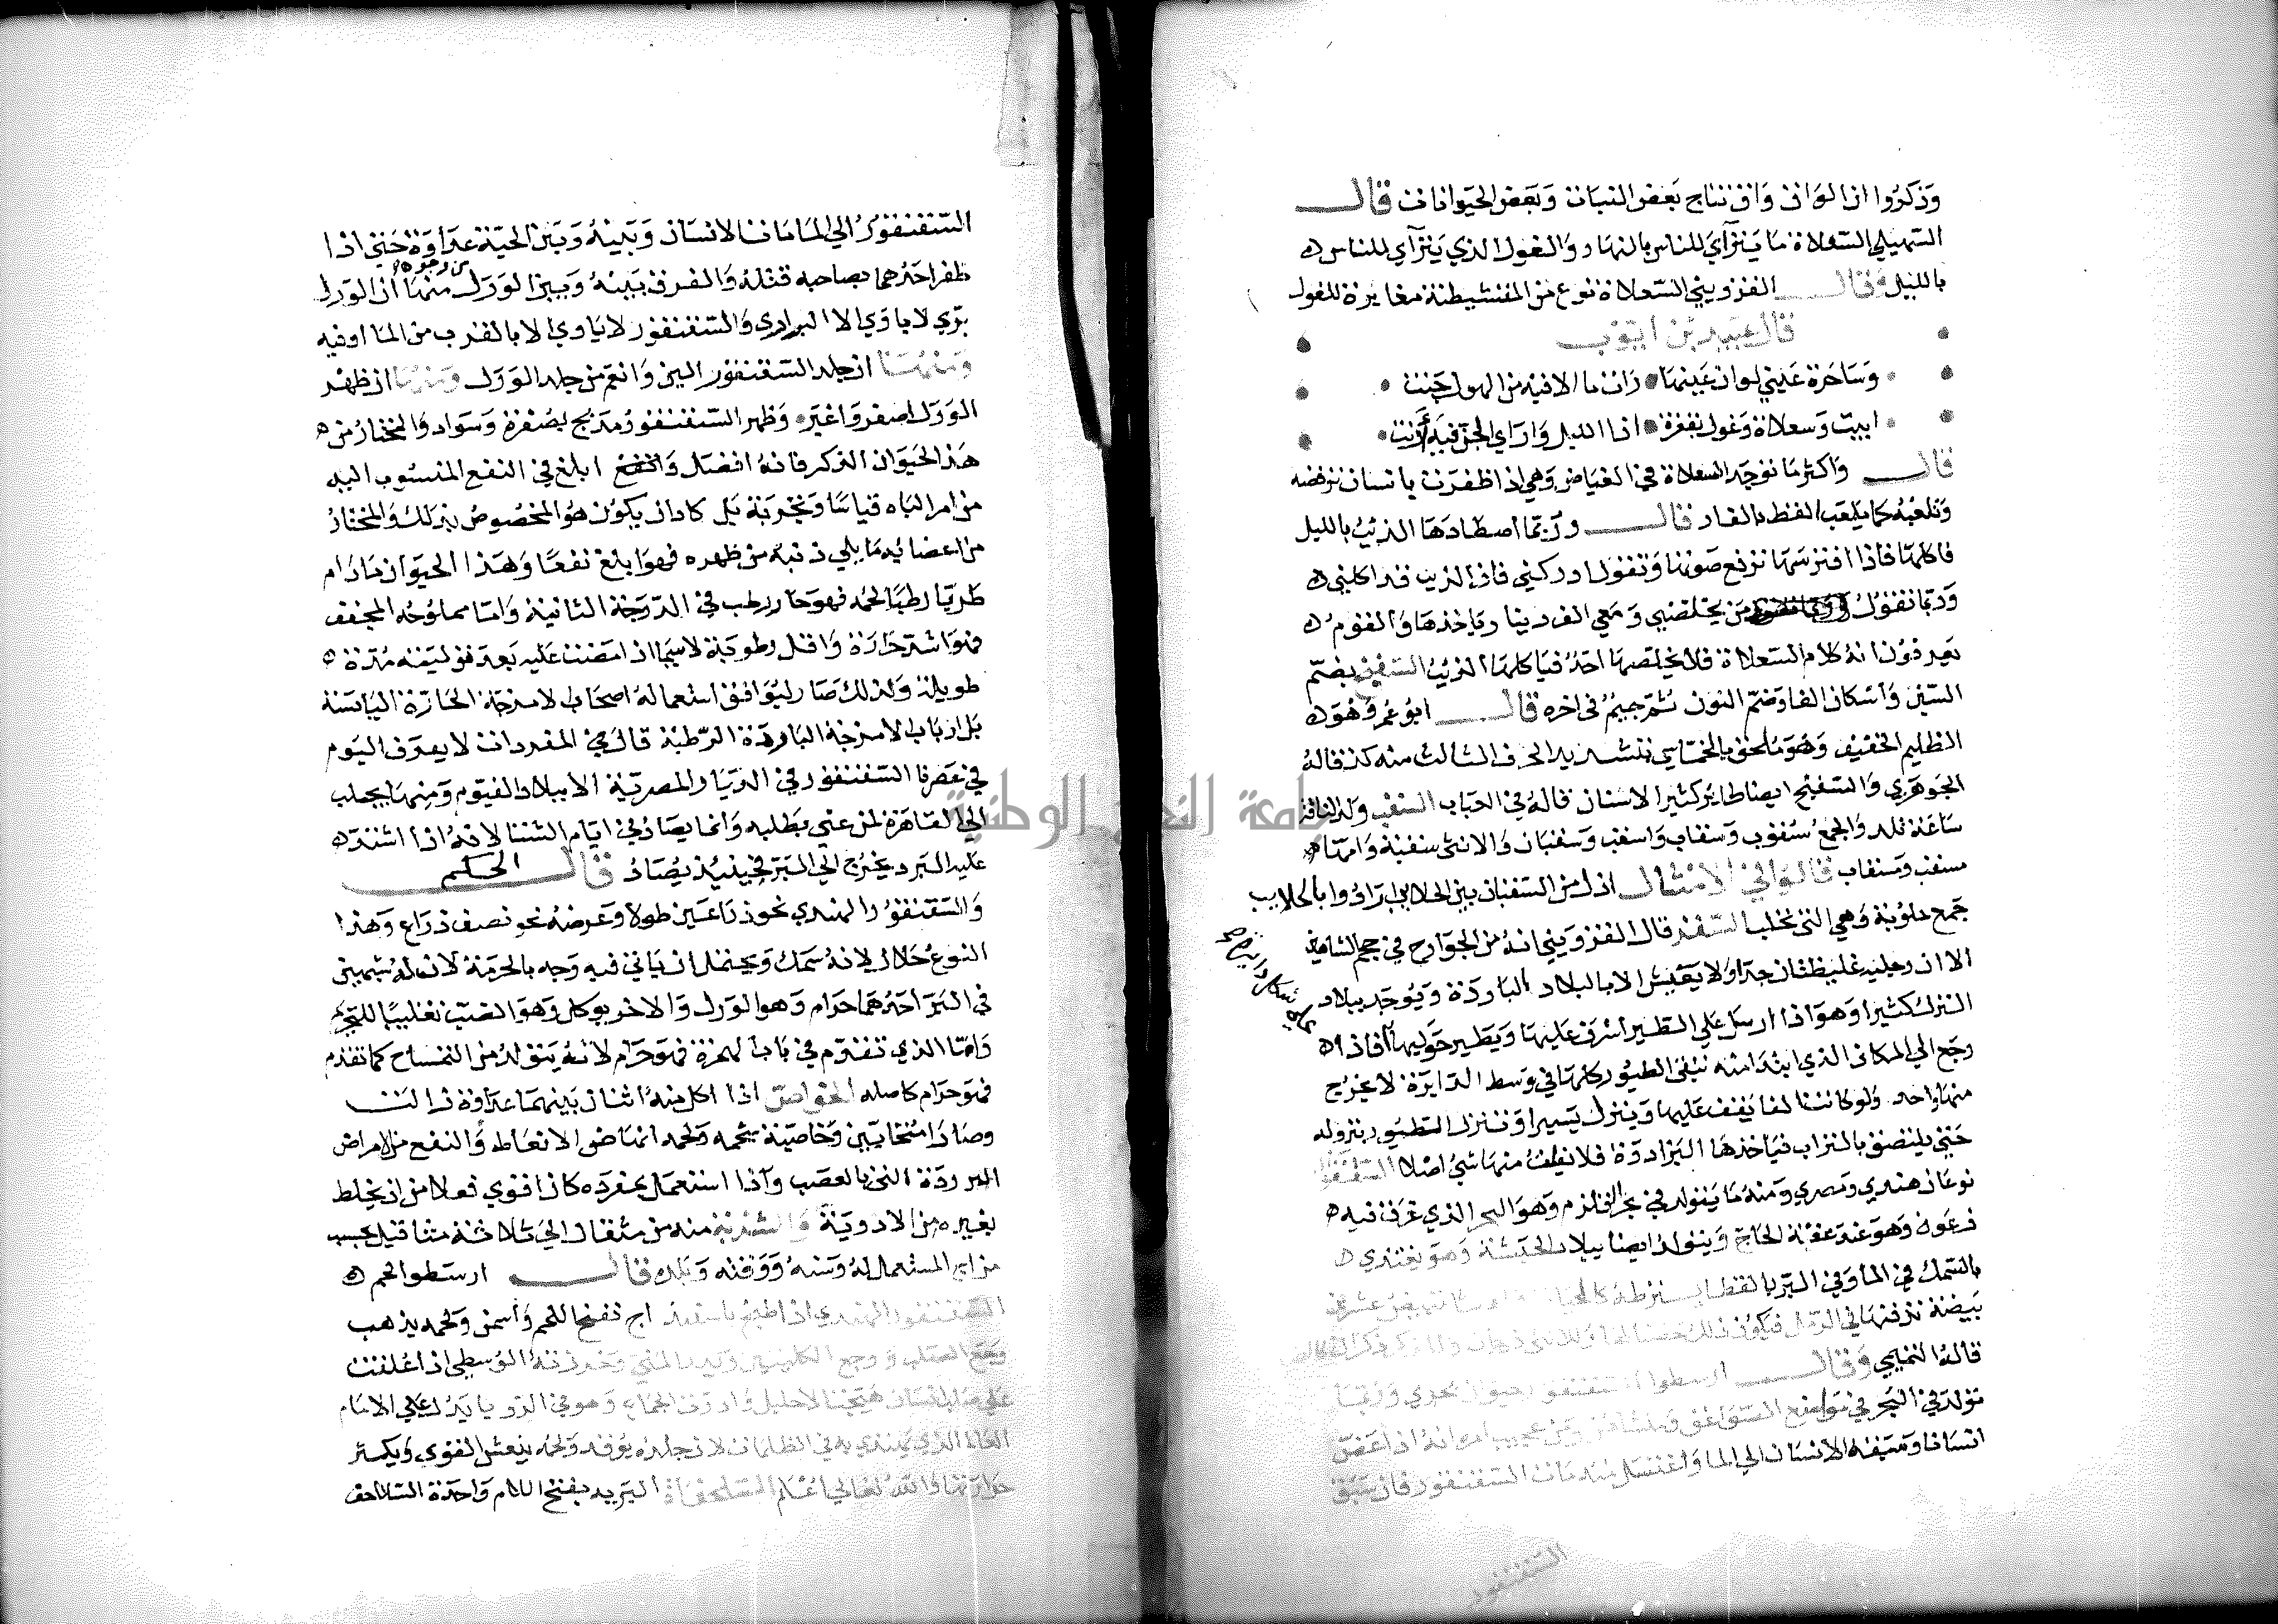 وَذكرُوا ان الوَاق وَاق نتاج بَعض النبات وَبَعض الحيَوانات قال
السهيلي السّعلاة مَا يَترآي للناس بالنهار والغول الذي يَترآي للناس
بالليل وقال القزويني السّعلاة نوع من المتشيطنة مغايرة للغول
قال عبيد بن ايوب
وَسَاحرة عَيني لو ان عَينها رَات ما الاقيه من الهول جنت
ابيت وسعلاة وَغول بقفرة اذا الليل وَاراي الجنّ فيه أرنت
قال وَاكثر مَا توجَد السعلاة في الغياض وَهي اذا ظفرَت بانسان ترقصه
وَتلعبُ به كما يلعَب القط بالفار قال ورُبّما اصطادَهَا الذئبُ بالليل
فاكلها فاذا افترسَها ترفع صَوتها وَتقول ادركني فان الذيب قد اكلني
وَربما تقولُ مَن يخلصني وَمَعي الف دينار يَاخذهَا وَالقومُ
يَعرفوُن انهُ كلام السّعلاة فلا يخلصها احدُ فيَاكلهَا الذيبُ السفنج بضمّ
السّين وَاسكان الفا وَضمّ النون ثمّ جيمُ في اخره قال ابوُ عمرو هُوَ
الظليم الخفيف وَهوَ مُلحق بالخمَاسي بتشديد الحرف الثالث منه كذا قالهُ
الجَوهَري وَالسّفنج ايضا طايرَ كثير الاستنان قالهُ في العباب السقب وَلد الناقة
سَاعَة تلد وَالجمعُ سُقوب وَسقاب وَاسقب وَسقبان وَالانثى سقبة وَامهَا
مسقب وَمسقاب قالوَا في الامثال اذل من السّقبان بين الحلايب اَرَادُوا بالحلايب
جَمع حلوُبة وَهي التي تحلب السّقر قال القزويني انهُ من الجوَارح في حجم الشاهين
الا ان رجليه غليظتان جدا وَلا يَعَيش الا بالبلاد البَاردَة وَيوُجَد ببلاد
الترك كثيرا وَهوَ اذا ارسل علي الطير اشرف عَليهَا وَيَطير حَولهَا فاذا
رجَع الي المكان الذي ابتدَا منه تبقى الطيُور كلهَا في وَسط الدَايرة لا يخرج
منهَا وَاحد وَلو كانت الفا يَقف عَليهَا وَينزل يَسيرا وَتنزل الطيُور بنزوله
حَتى يلتصق بالتراب فيَاخذهَا البَزادرَة فلا يفلتُ منهَا شيُ اصلا السّقنقور
نوعَان هندي وَمصري وَمنهُ مَا يَتولد في بحر القلزم وَهوَ البحر الذي غرَق فيه
فرعَون وَهوَ عندَ عقبَة الحَاج وَيتولد ايضا ببلاد الحبَشة وَهوَ يغتذي
بالسّمك في الما وَفي البر بالقطا يسترطه كالحيات تبيض عشرين
بَيضة تدفنها في الرّمل فيكوُن ذلك حضنا لها وَللانثى فرجان وللذكر ذكران
قالهُ التميمي وَقال ارسطوا السقنقور حيَوان بحري وَرُبما
توَلدَ في البَحر في مَوَاضع الصّوَاعق وَمن عجيب امره انهُ اذا عَضّ
انسَانا وَسَبقهُ الانسَان الي الما وَاغتسَل منه مَات السّقنقور فان سَبَق
السّقنقور
السّقنقوُرُ الي الما مَات الانسَان وَبَينهُ وَبَين الحيّة عدَاوَة حَتى اذا
ظفر احَدهمَا بصاحبه قتلهُ وَالفرق بَينهُ وَبين الوَرَل من وجوه منهَا ان الوَرل
برّي لا ياوَي الا البراري وَالسّقنقور لا يَاوي الا بالقرب من الما اوفيه
وَمنهَا ان جلد السّقنقوُر الين وَانعَم من جلد الوَرَل وَمنهَا ان ظهْر
الوَرَل اصفر وَاغبَر وَظهر السّقنقورُ مَدَبج بصُفرة وَسَواد وَالمختارُ من
هَذا الحيَوان الذكر فانهُ افضَل وَانفع ابلغ في النفع المنسوُب اليه
من امر البَاه قياسًا وَتجربَة بَل كادان يكوُن هوَ المخصُوصُ بذلك وَالمختارُ
من اعضائه مَا يلي ذنبهُ من ظهره فهوَ ابلغ نفعًا وَهَذا الحيوَان مَا دَام
طَريّا رطبَا لحمُه فهوَ حار رطب في الدّرَجَة الثانية وَامَّا مملوُحُه المجفف
فهوَ اشد حَرَارَة وَاقل رطوبَة لاسيَّما اذا مَضت عَليه بَعدَ تعليقه مُدّة
طويلة وَلذلك صَار لا يوَافق استعمالهُ اصحَاب الامزجَة الحَارّة اليَابسَة
بَل اربَاب الامزجَة البَاردَة الرّطبة قال في المفردات لا يعرف اليَوم
في عَصرنا السّقنقور في الديَار المصريّة الا ببلاد الفيوّم وَمنهَا يجلب
الي القاهَرة لمن عني بطلبه وَانما يصَادُ في ايَام الشتا لانهُ اذا اشتد
عَليه البرد يخرُج الي البَرّ فحينئذ يُصَادُ قال الحكم
وَالسّقنقوُر الهندي نحو ذرَاعَين طولا وَعَرضهُ نحو نصف ذرَاع وَهذا
النوعُ حَلال لانهُ سمَك وَيحتمل ان يَاتي فيه وَجه بالحرمَة لان لهُ شبهين
في البَرّ احَدهمَا حرَام وَهوا الوَرل وَالاخر يوكل وَهوَ الضبّ تغليبًا للتحريم
وَامّا الذي تقدّم في بَاب الهمزة فهوَ حَرَام لانهُ يَتولدُ من التمساح كما تقدم
فهوَ حرَام كاصله الخوَاصّ اذا اكل منهُ اثنان بَينهمَا عدَاوَة زالت
وصَارَا متحَابّين وَخَاصيّة شحمه وَلحمه انهَاض الانعَاظ وَالنفع من الامراض
الباردَة التي بالعَصَب وَاذا استعمل بمفرَده كان اقوي فعلا من ان يخلط
بغيره من الادوَية وَالشربَة منه من مثقال الي ثلاثة مثاقيل بحسب
مزاج المستعمل لهُ وَسنهُ وَوَقته وَبَلده قال ارسطوا لحم
السّقنقور الهندي اذا طبخ باسفيداج نفخ اللحم وَاسمن وَلحمه يذهب
وَجَع الصلب وَوجع الكليتين وَيدر المني وَخرزتهُ الوُسطي اذا عُلقت
علي صلب انسَان هَيّجَت الاحليل وَزادت في الجماع وَهوَ في الرّؤيا يَدُل علي الامَام
العَالم الذي يُهتدي به في الظلمات لان جلدهُ يوُقد وَلحمُه ينعش القوي وَيكثر
حرَارَتهَا وَاللهُ تعَالي اعْلم السّلحفاة البريّه بفتح اللام وَاحدَة السّلاحف
جامعة النجاح الوطنية